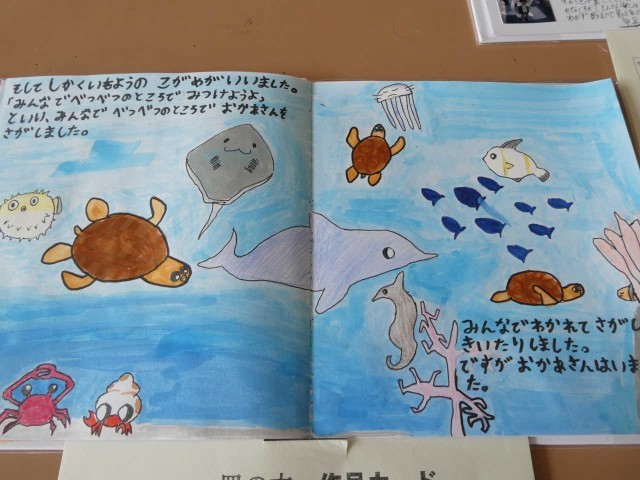 そしてしかくいちようの こがめがいいました。
「みんなでべつべつのところで みつけようよ」
といい、みんなで べつべつのところで おかあさんを
さがしました。
みんなでわかれて さがし
きいたりしました。
ですが おかあさんはいま
た。
作品カード